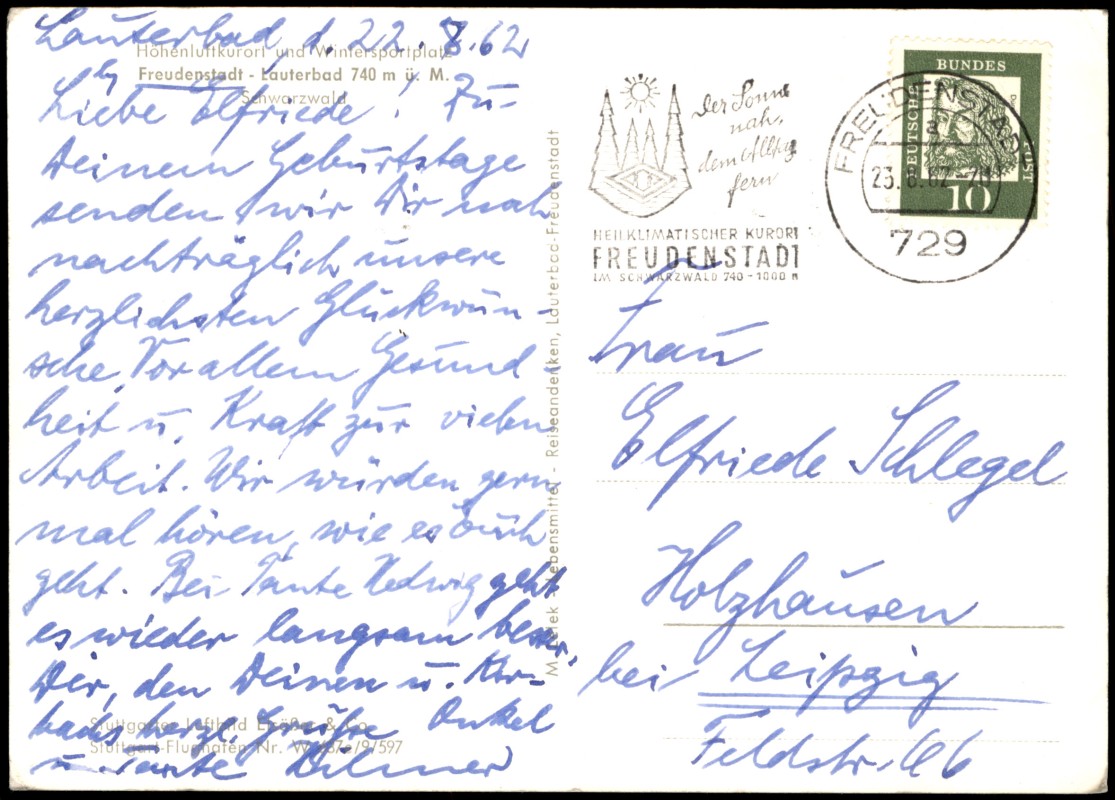 Lauterbad d. 22. 8. 62
Höhenluftkurort und Wintersportplatz
Freudenstadt - Lauterbad 740 m ü. M.
Schwarzwald
Liebe Elfriede! Zu
Deinem Geburtstage
senden wir Dir noch
nachträglich unsere
herzlichsten Glückwün-
sche, Vor allem Gesund-
heit u. Kraft zur vielen
Arbeit. Wir würden gern
mal hören, wie es Euch
geht. Bei Tante Hedwig geht
es wieder langsam besser.
Dir, den Deinen u.
herzl. Grüße Onkel
u. Tante
Stuttgarter Luftbild Elsäßer & Co.
Stuttgart-Flughafen Nr. 9/597
Lebensmittel - Reiseandenken, Lauterbad-Freudenstadt
Der Sonne
nah,
dem Alltag
fern
HEILKLIMATISCHER KURORT
FREUDENSTADT
IM SCHWARZWALD 740 - 1000 M
FREUDENSTADT
a
23.8.62
729
DEUTSCHE
BUNDES
POST
10
Frau
Elfriede Schlegel
Holzhausen
bei Leipzig
Feldstr. 66